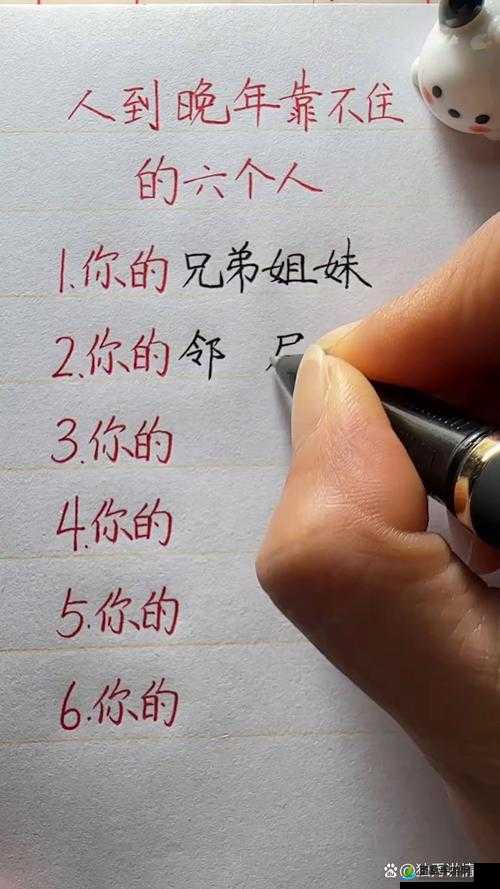 人到晚年靠不住
的六个人
1.你的兄弟姐妹
2.你的邻
3.你的
4.你的
5.你的
6.你的